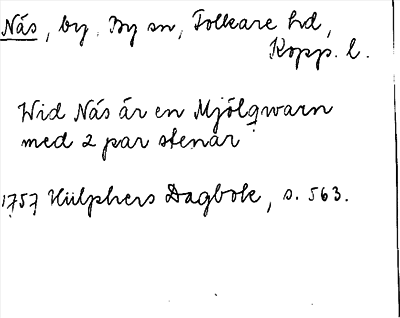 Näs, by, By sn, Folkare hd,
Kopp. l.
Wid Näs är en Mjölqwarn
med 2 par stenar
1757 Hülphers Dagbok, s. 563.